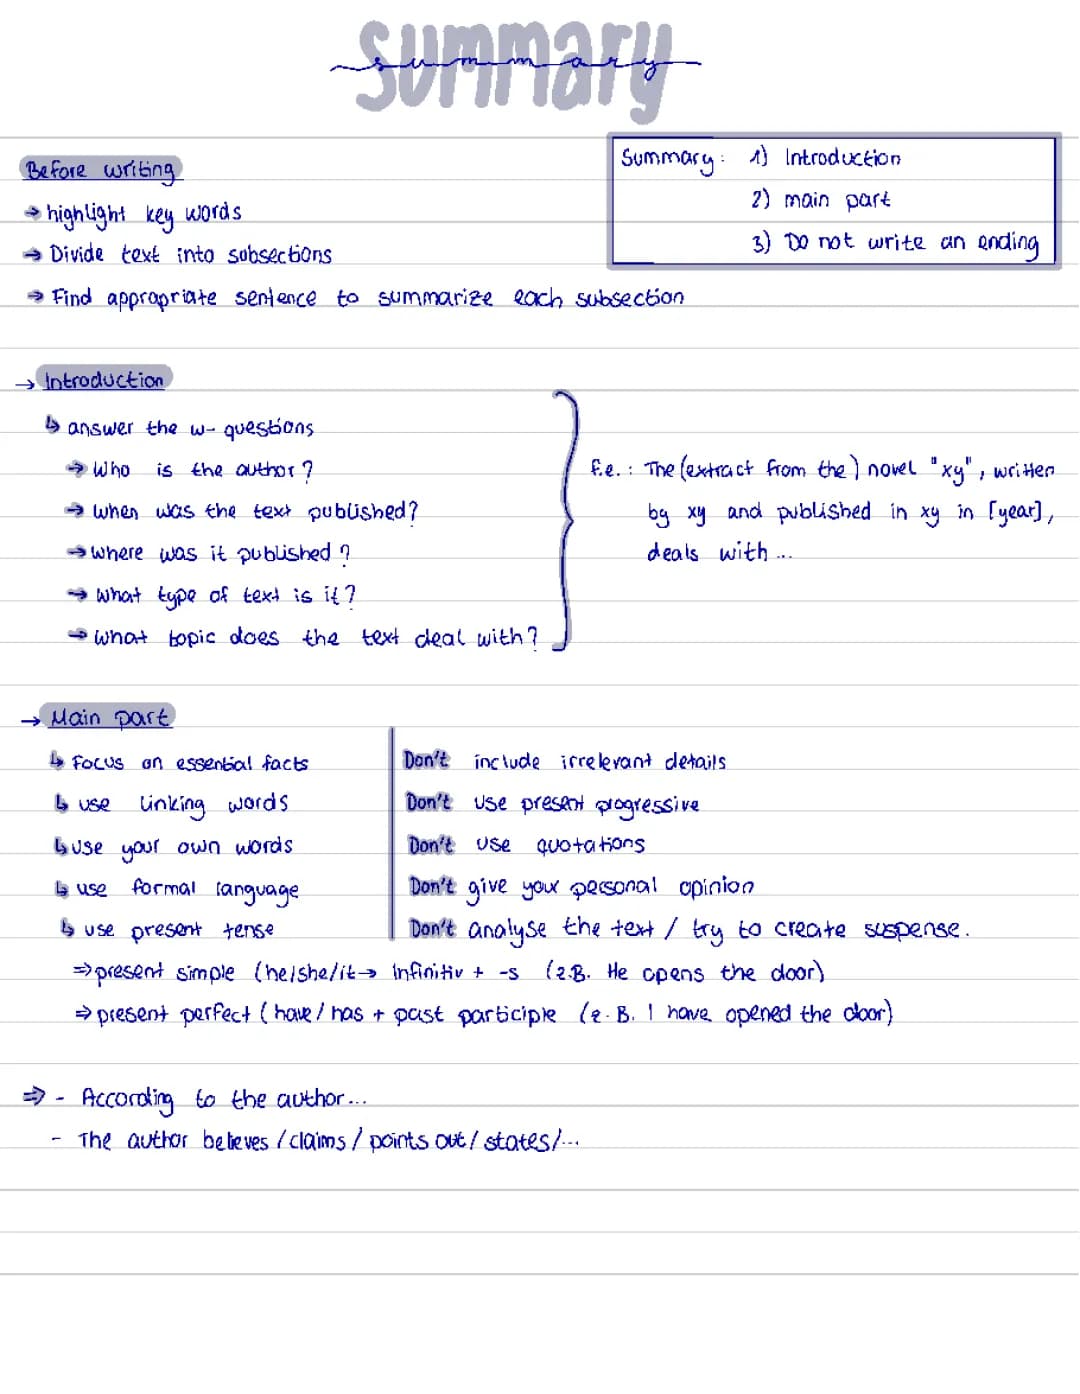 summary
summary
Before writing
→ highlight key words
→ Divide text into subsections
→ Find appropriate sentence to summarize each subsection
Summary: 1) Introduction
2) main part
3) Do not write an ending
→ Introduction
↳ answer the w-questions
→ Who is the author?
→ When was the text published?
→ Where was it published?
→ What type of text is it?
→ What topic does the text deal with?
f.e.: The (extract from the) novel "xy", written
by xy and published in xy in [year],
deals with...
→ Main part
↳ Focus on essential facts
↳ use linking words
↳ use your own words
↳ use formal language
↳ use present tense
Don't include irrelevant details
Don't use present progressive
Don't use quotations
Don't give your personal opinion
Don't analyse the text / try to create suspense.
⇒ present simple (he/she/it → Infinitiv + -s (z.B. He opens the door)
⇒ present perfect (have / has + past participle (z.B. I have opened the door)
⇒ - According to the author...
- The author believes / claims / points out / states/...